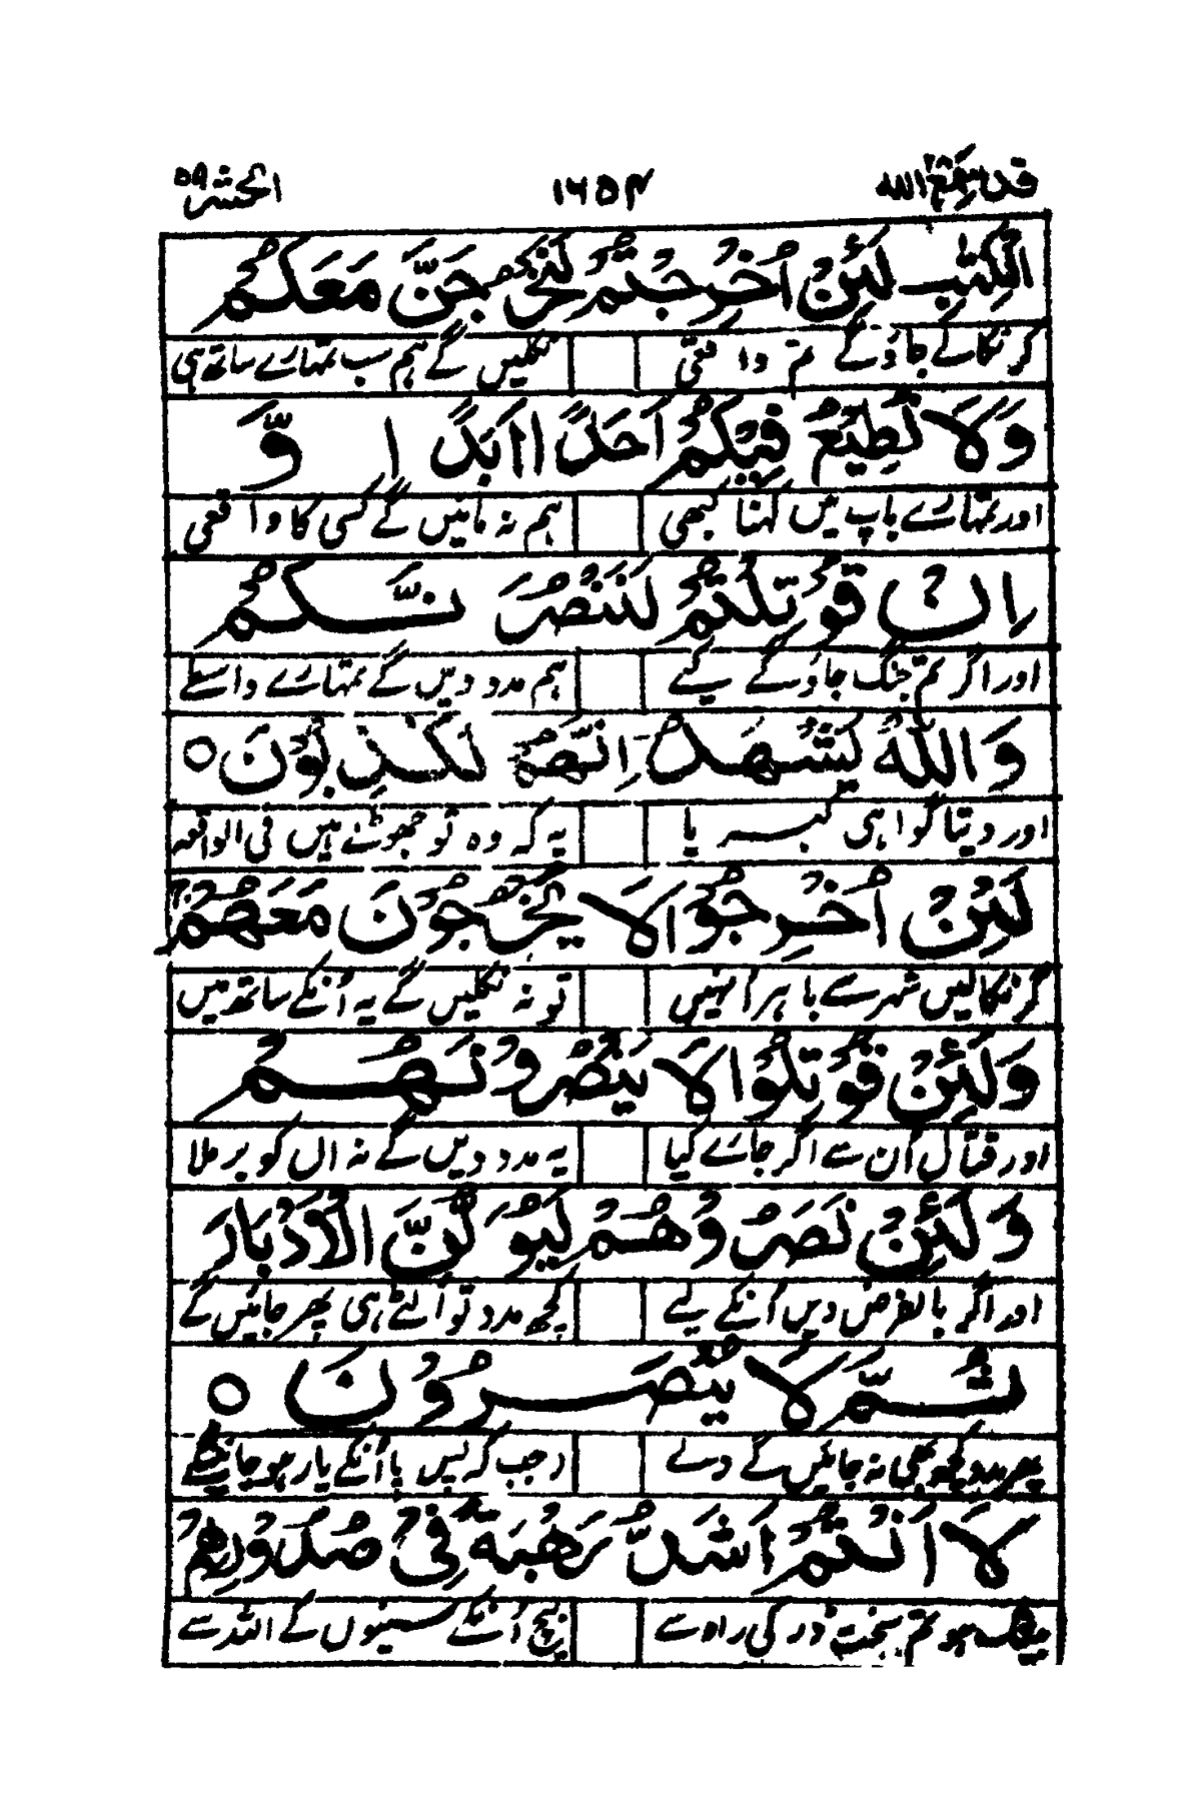 قد سمع الله ۲۸ ۱۶۵۴ الحشر ۵۹
الْكِتٰبِ لَئِنْ اُخْرِجْتُمْ لَنَخْرُجَنَّ مَعَكُمْ
گر نکالے جاؤ گے تم واقعی نکلیں گے ہم سب تمہارے ساتھ ہی
وَلَا نُطِيْعُ فِيْكُمْ اَحَدًا اَبَدًا وَّ
اور تمہارے باب میں کہنا کبھی ہم نہ مانیں گے کسی کا واقعی
اِنْ قُوْتِلْتُمْ لَنَنْصُرَنَّكُمْ
اور اگر تم جنگ جاؤ گے کیے ہم مدد دیں گے تمہارے واسطے
وَاللّٰهُ يَشْهَدُ اِنَّهُمْ لَكٰذِبُوْنَ ○
اور دیتا گواہی کبریا یہ کہ وہ تو جھوٹے ہیں فی الواقعہ
لَئِنْ اُخْرِجُوْا لَا يَخْرُجُوْنَ مَعَهُمْ
گر نکالیں شہر سے باہر انہیں تو نہ نکلیں گے یہ اُنکے ساتھ میں
وَلَئِنْ قُوْتِلُوْا لَا يَنْصُرُوْنَهُمْ
اور قتال اُن سے اگر جارے کیا یہ مدد دیں گے نہ ان کو برملا
وَلَئِنْ نَصَرُوْهُمْ لَيُوَلُّنَّ الْاَدْبَارَ
اور اگر بالفرض دیں اُنکے لیے کچھ مدد تو اُلٹے ہی پھر جائیں گے
ثُمَّ لَا يُنْصَرُوْنَ ○
پھر مدد کچھ بھی نہ جائیں گے دئے جب کہ بس پا اُنکے یار ہو جائینگے
لَا اَنْتُمْ اَشَدُّ رَهْبَةً فِيْ صُدُوْرِهِمْ
بیشک ہو تم سخت ڈر کی راہ سے بیچ اُنکے سینوں کے اللہ سے